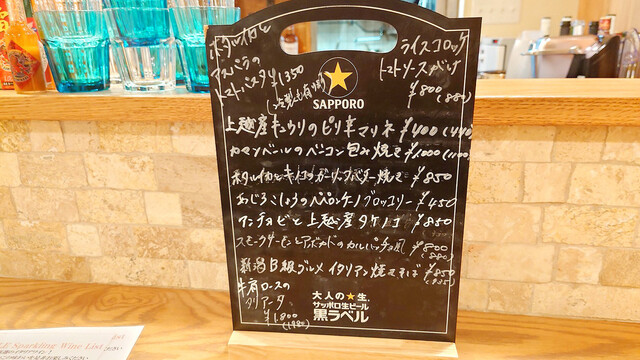 ホタルイカと
アスパラの
トマトパスタ ¥1350
(冷製も有ります)
ライスコロッケ
トマトソースがけ
¥800
(880)
SAPPORO
上越産キュウリのピリ辛マリネ ¥400 (440)
カマンベールのベーコン包み焼き ¥1000 (1100)
ホタルイカとキノコのガーリックバター焼き ¥850
あじろこしょうのペペロンチーノブロッコリー ¥450
アンチョビと上越産タケノコ ¥850
スモークサーモンとアボカドのカルパッチョ風 ¥800
(880)
新潟B級グルメ イタリアン焼きそば ¥850
(935)
牛肩ロースの
タリアータ
¥1,800
(1980)
大人の★生。
サッポロ生ビール
黒ラベル
Sparkling Wine List